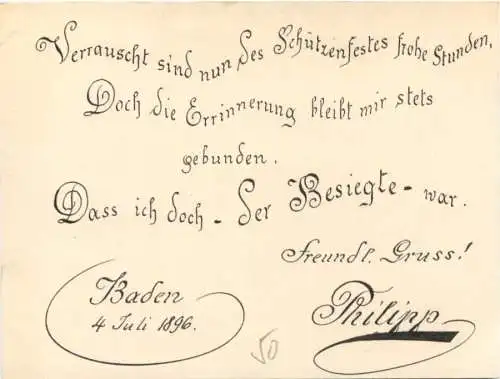 Verrauscht sind nun des Schützenfestes frohe Stunden,
Doch die Errinnerung bleibt mir stets
gebunden.
Dass ich doch - der Besiegte - war.
Freundl. Gruss!
Baden
4 Juli 1896.
Philipp
50